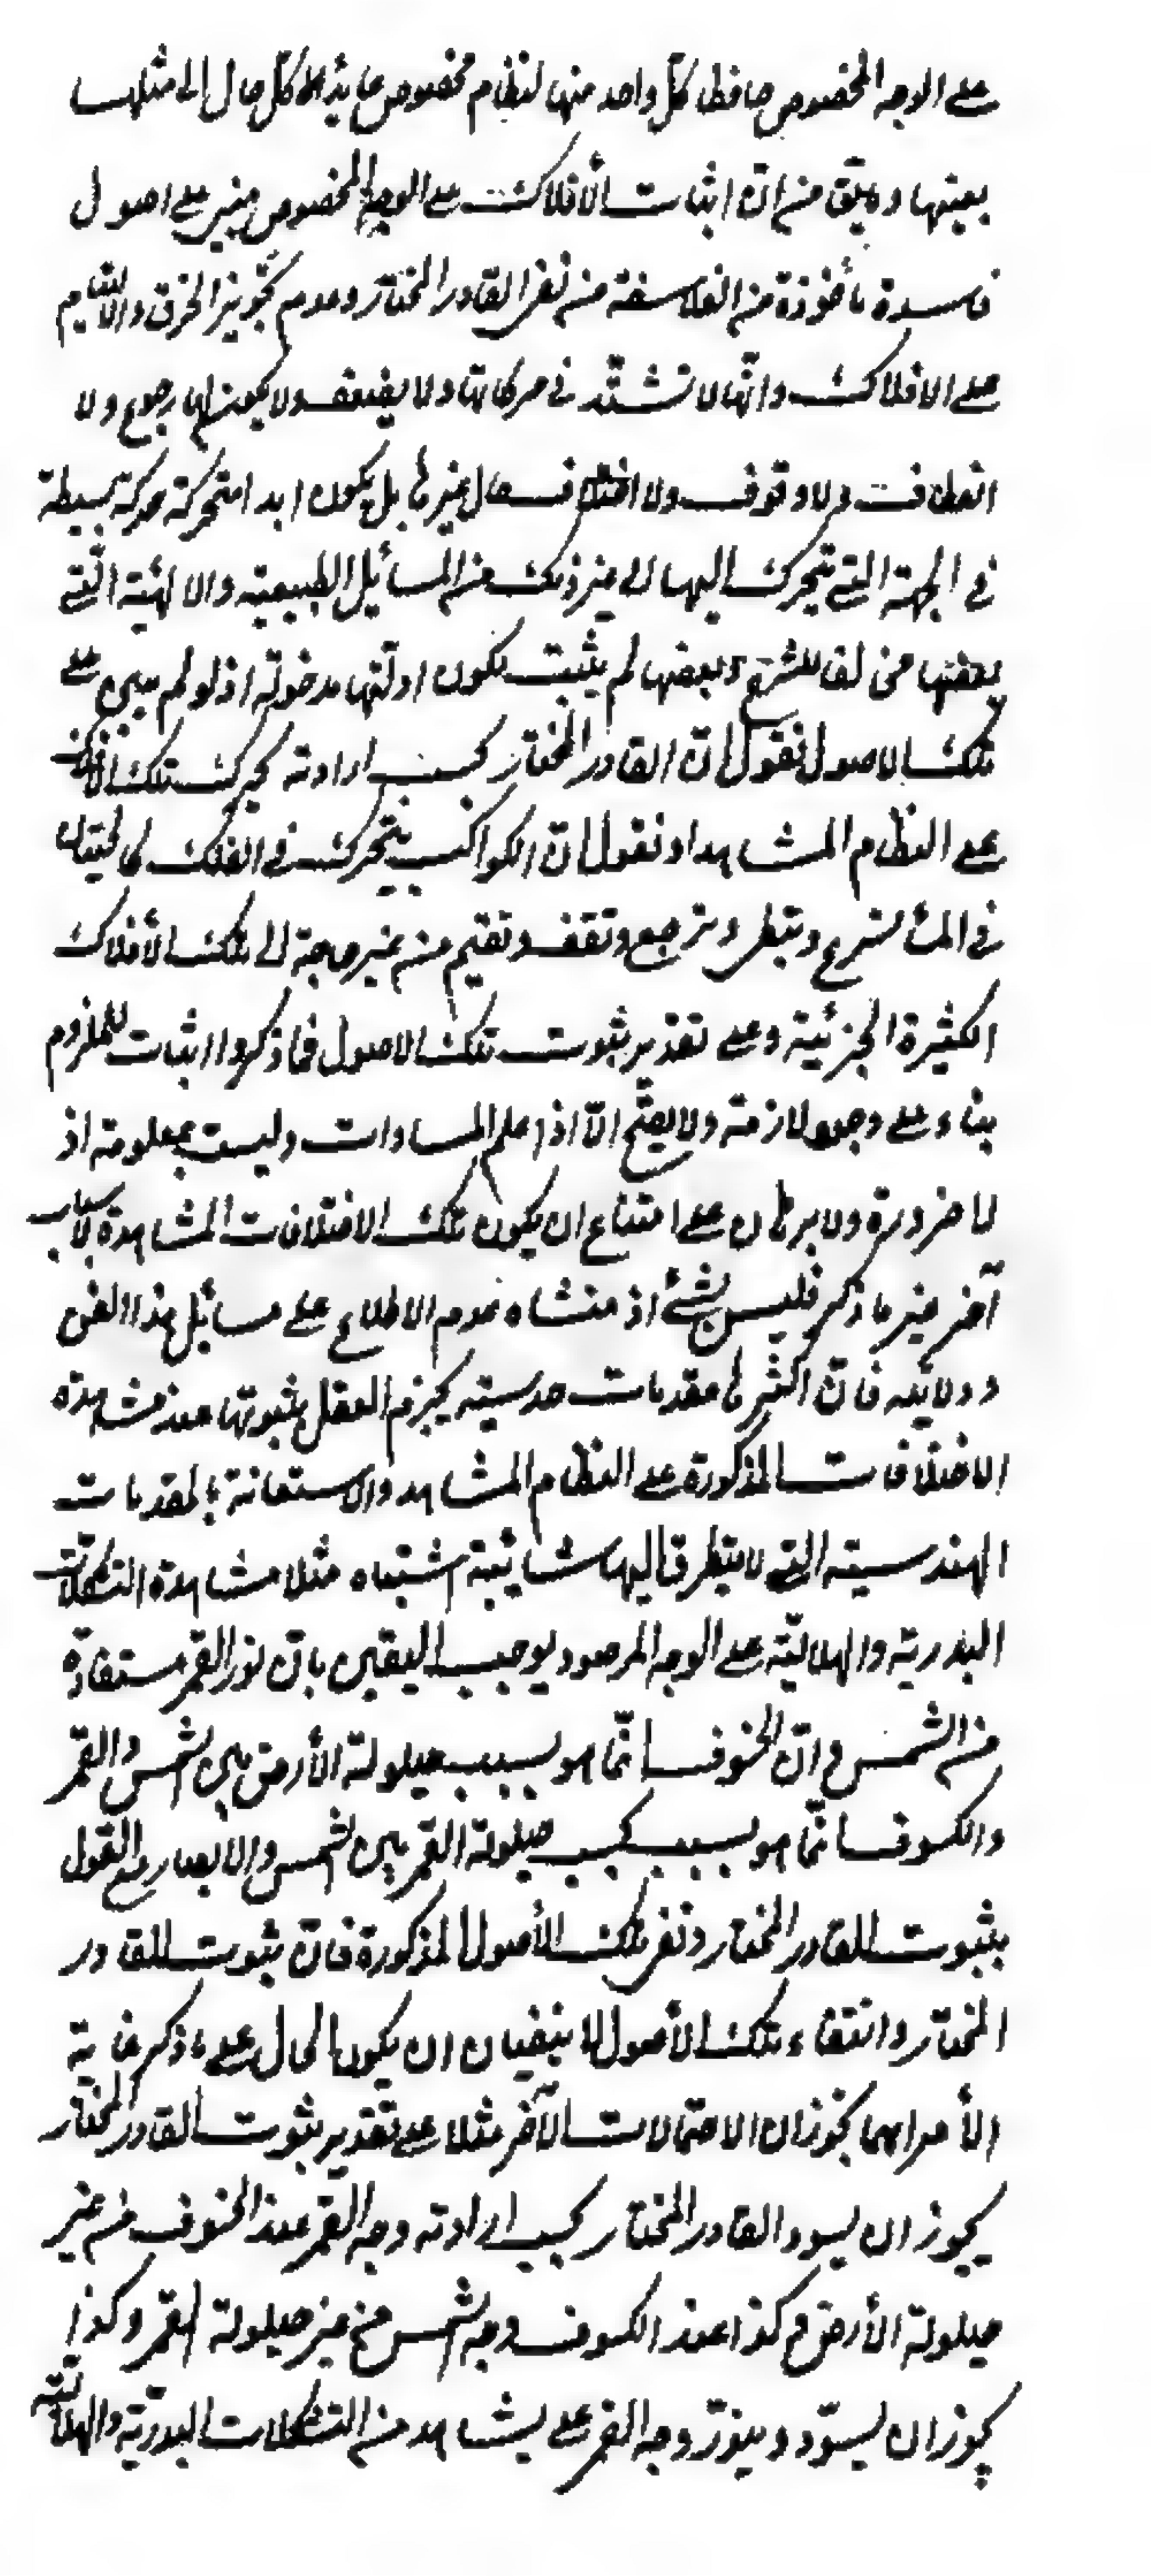 على الوجه المخصوص حافظا كل واحد منها لنظام مخصوص عايدا كل حال الى مثلها
بعينها وما يقى من ان اثبات الأفلاك على الوجه المخصوص مبنى على اصول
فاسدة مأخوذة من الفلاسفة من نفى القادر المختار وعدم تجويز الخرق والالتيام
على الافلاك وانها لا تشتد فى حركاتها ولا يضعف ولا يكون لها رجوع ولا
انعطاف ولا وقوف ولا اختلاف حال غيرها بل يكون ابدا متحركة حركة بسيطة
فى الجهة التى يتحرك اليها الى غير ذلك من المسائل الطبيعية والالهية التى
بعضها مخالف للشرع وبعضها لم يثبت لكون ادلتها مدخولة اذ لو لم يبن على
تلك الاصول نقول ان القادر المختار بحسب ارادته يحرك تلك الافلاك
على النظام المشاهد او نقول ان الكواكب يتحرك فى الفلك كالحيتان
فى الماء تسرع وتبطى وترجع وتقف وتقيم من غير حاجة الى تلك الأفلاك
الكثيرة الجزئية وعلى تقدير ثبوت تلك الاصول فما ذكروا اثبات للملزوم
بناء على وجود لازمه ولا يصح الا اذا علم المساوات وليست بمعلومة اذ
لا ضرورة ولا برهان على امتناع ان يكون تلك الاختلافات المشاهدة لاسباب
آخر غير ما ذكر فليس بشئ اذ منشاه عدم الاطلاع على مسائل هذا الفن
ودلائله فان اكثرها مقدمات حدسية يجزم العقل بثبوتها عند مشاهدة
الاختلافات المذكورة على النظام المشاهد والاستعانة بالمقدمات
الهندسية التى لا يتطرق اليها شايبة اشتباه مثلا مشاهدة التشكلات
البدرية والهلالية على الوجه المرصود يوجب اليقين بان نور القمر مستفادة
من الشمس وان الخسوف انما هو بسبب حيلولة الأرض بين الشمس والقمر
والكسوف انما هو بسبب بحسب حيلولة القمر بين الشمس والابصار مع القول
بثبوت القادر المختار ونفى تلك الأصول المذكورة فان ثبوت القادر
المختار وانتفاء تلك الأصول لا ينفيان ان يكون الحال على ما ذكر غاية
الأمر انهما يجوزان الاحتمالات الآخر مثلا على تقدير ثبوت القادر المختار
يجوز ان يسود القادر المختار بحسب ارادته وجه القمر عند الخسوف من غير
حيلولة الأرض وكذا عند الكسوف وجه الشمس من غير حيلولة القمر وكذا
يجوز ان يسود وينور وجه القمر على يشاهد من التشكلات البدرية والهلالية